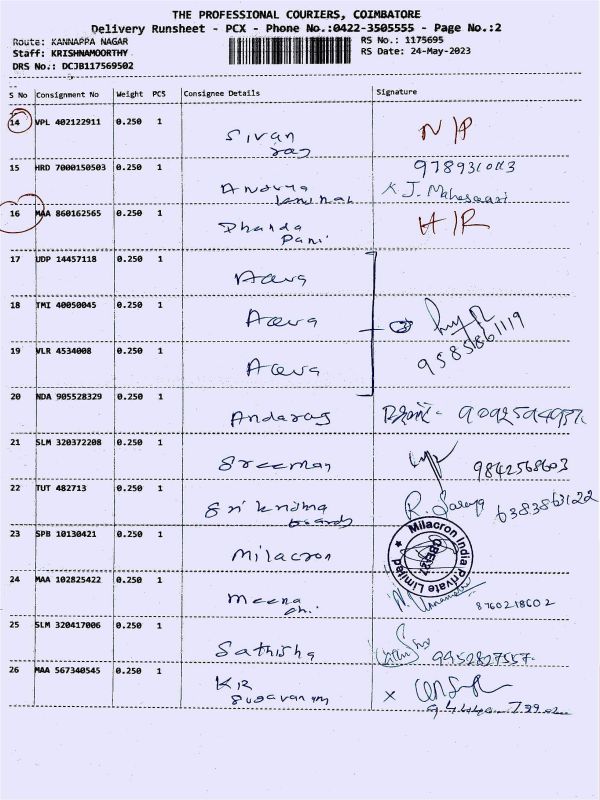 THE PROFESSIONAL COURIERS, COIMBATORE
Delivery Runsheet - PCX - Phone No.:0422-3505555 - Page No.:2
Route: KANNAPPA NAGAR
Staff: KRISHNAMOORTHY
DRS No.: DCJB117569502
RS No.: 1175695
RS Date: 24-May-2023
S No Consignment No Weight PCS Consignee Details Signature
14 VPL 402122911 0.250 1 Sivan N/P
raj
15 HRD 7000150503 0.250 1
K J. Maheswari
16 MAA 860162565 0.250 1 Dhanda H/R
Pani
17 UDP 14457118 0.250 1
18 TMI 40050045 0.250 1
19 VLR 4534008 0.250 1
9585861119
20 NDA 905528329 0.250 1
21 SLM 320372208 0.250 1 Sreeman 9842568603
22 TUT 482713 0.250 1 Sri
6383863122
23 SPB 10130421 0.250 1 Milacron
Milacron India Private Limited
24 MAA 102825422 0.250 1 Meena
chi 8760218602
25 SLM 320417006 0.250 1 Sathisha 9952827557
26 MAA 567340545 0.250 1 KR
Sugavanam